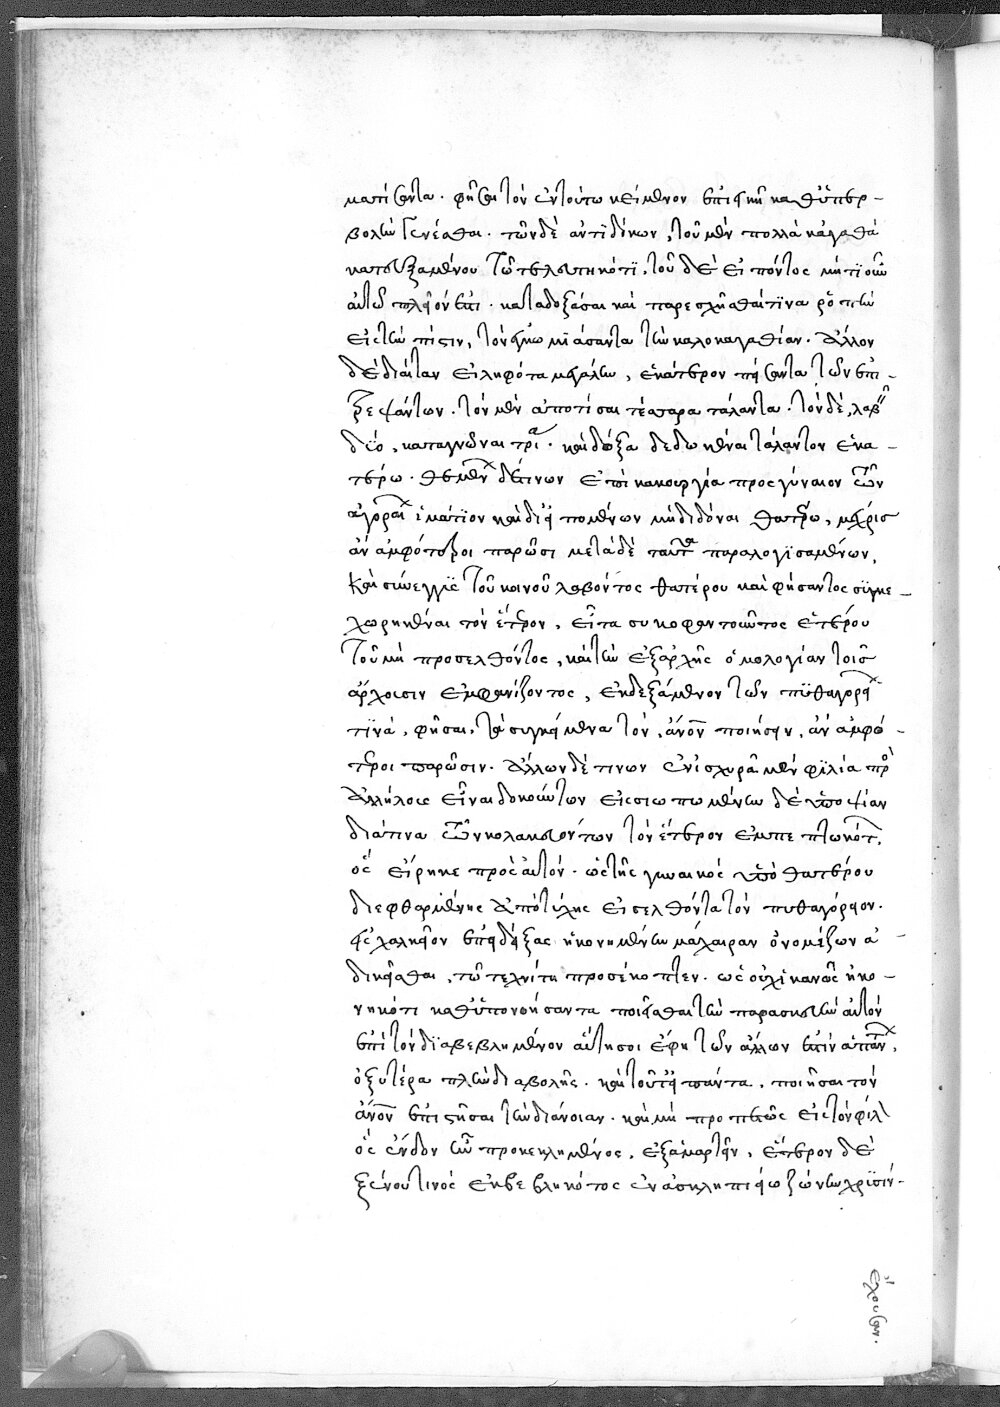 ματίσαντα. φῆσαι τὸν ἐν τούτω κείμενον ἐπὶ σκηνῆ καθ' ὑπερ-
βολὴν γενέσθαι. τῶν δὲ ἀντιδίκων, τοῦ μὲν πολλὰ κἀγαθὰ
κατευξαμένου τῶ τελευτηκότι, τοῦ δὲ εἰπόντος μήτι οὖν
αὐτῶ πλεῖόν ἐστι. καταδοξάσαι καὶ παρεσχῆσθαί τινα ῥοπὴν
εἰς τὴν πίστιν, τὸν ἐγκωμιάσαντα τὴν καλοκαγαθίαν. ἄλλον
δὲ δίαιταν εἰληφότα μεγάλην, ἑκάτερον πείσαντα τῶν ἐπι-
τρεψάντων. τὸν μὲν ἀποτίσαι τέσσαρα τάλαντα. τὸν δὲ, λαβεῖν
δύο, καταγνῶναι τρία. καὶ δόξαι δεδωκέναι τάλαντον ἑκα-
τέρω. θεμένων δέ τινων ἐπὶ κακουργία πρὸς γύναιον τῶν
ἀγοραίων ἱμάτιον καὶ διειπομένων μὴ διδόναι θατέρω, μέχρις
ἂν ἀμφότεροι παρῶσι μετὰ δὲ ταῦτα παραλογϊσαμένων,
καὶ σύνεγγϋς τοῦ κοινοῦ λαβόντος θατέρου καὶ φήσαντος συγκε-
χωρηκέναι τὸν ἕτερον, εἶτα συκοφαντοῦντος ἑτέρου
τοῦ μὴ προσελθόντος, καὶ τὴν ἐξαρχῆς ὁμολογίαν τοῖς
ἄρχουσιν ἐμφανίζοντος, ἐκδεξάμενον τῶν πϋθαγορείων
τϊνά, φῆσαι, τὰ συγκείμενα τὸν ἄνον ποιήσειν, ἂν ἀμφό-
τεροι παρῶσιν. ἄλλων δέ τινων ἐν ἰσχυρᾶ μὲν φϊλία πρὸς
ἀλλήλους εἶναι δοκούντων εἰς σιωπωμένην δὲ ὑποψίαν
διά τινα τῶν κολακευόντων τὸν ἕτερον ἐμπεπτωκότων,
ὃς εἴρηκε πρὸς αὐτόν. ὡς τῆς γυναικὸς ὑπὸ θατέρου
διεφθαρμένης ἀπὸ τύχης εἰσελθόντα τὸν πυθαγόρειον.
εἰς χαλκεῖον ἐπιδείξας ἠκονημένην μάχαιραν ὁ νομίζων ἀ-
δικεῖσθαι, τῶ τεχνίτη προσέκοπτεν. ὡς οὐχ ἱκανῶς ἠκο-
νηκότι καθ' ὑπονοήσαντα ποιεῖσθαι τὴν παρασκευὴν αὐτὸν
ἐπὶ τὸν δϊαβεβλημένον αὕτη σοι ἔφη τῶν ἄλλων ἐστὶν ἁπάντων,
ὀξυτέρα πλὴν διαβολῆς. καὶ τοῦτ' εἴπαντα, ποιῆσαι τὸν
ἄνον ἐπιστῆσαι τὴν διάνοιαν. καὶ μὴ προπετῶς εἰς τὸν φίλον
ὃς ἔνδον ἦν προκεκλημένος, ἐξαμαρτεῖν, ἕτερον δὲ
ξένου τινὸς ἐκβεβληκότος ἐν ἀσκληπιείω ζώνην χρϋσίον-
ἔχουσαν.